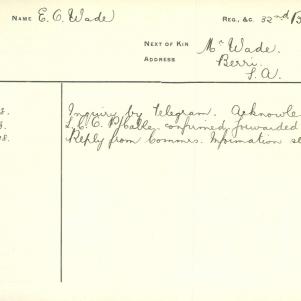 NAME E. C. Wade
REG., &C. 32nd B
NEXT OF KIN Mr Wade.
ADDRESS Berri.
S. A.
Inquiry by Telegram. Acknowle
confirmed forwarded
Reply from Commrs. Information se